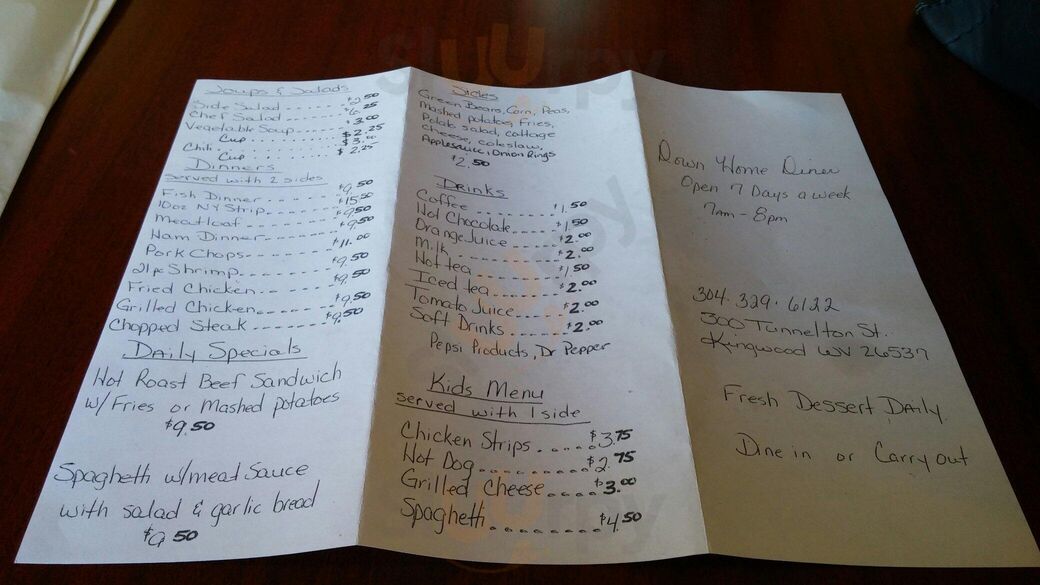 Soups & Salads
Side Salad ------ $2.50
Chef Salad ------ $6.25
Vegetable Soup ----- $3.00
Cup -------- $2.25
Chili ---------- $3.00
Cup -------- $2.25
Dinners
served with 2 sides
Fish Dinner ------ $9.50
10oz NY Strip ----- $15.50
Meatloaf ------- $9.50
Ham Dinner ------ $9.50
Pork Chops ------ $11.00
21pc Shrimp ------ $9.50
Fried Chicken ----- $9.50
Grilled Chicken ---- $9.50
Chopped Steak ------ $9.50
Daily Specials
Hot Roast Beef Sandwich
w/Fries or Mashed potatoes
$9.50
Spaghetti w/meat sauce
with salad & garlic bread
$9.50
Sides
Green Beans, Corn, Peas,
Mashed potatoes, Fries,
Potato salad, cottage
cheese, coleslaw,
Applesauce, Onion Rings
$2.50
Drinks
Coffee ---------- $1.50
Hot Chocolate ------ $1.50
Orange Juice ------ $2.00
Milk ----------- $2.00
Hot tea --------- $1.50
Iced tea -------- $2.00
Tomato Juice ------ $2.00
Soft Drinks ------ $2.00
Pepsi Products, Dr Pepper
Kids Menu
served with 1 side
Chicken Strips ..... $3.75
Hot Dog ......... $2.75
Grilled Cheese .... $3.00
Spaghetti ........ $4.50
Down Home Diner
Open 7 Days a week
7am - 8pm
304.329.6122
300 Tunnelton St.
Kingwood WV 26537
Fresh Dessert Daily
Dine in or Carry out